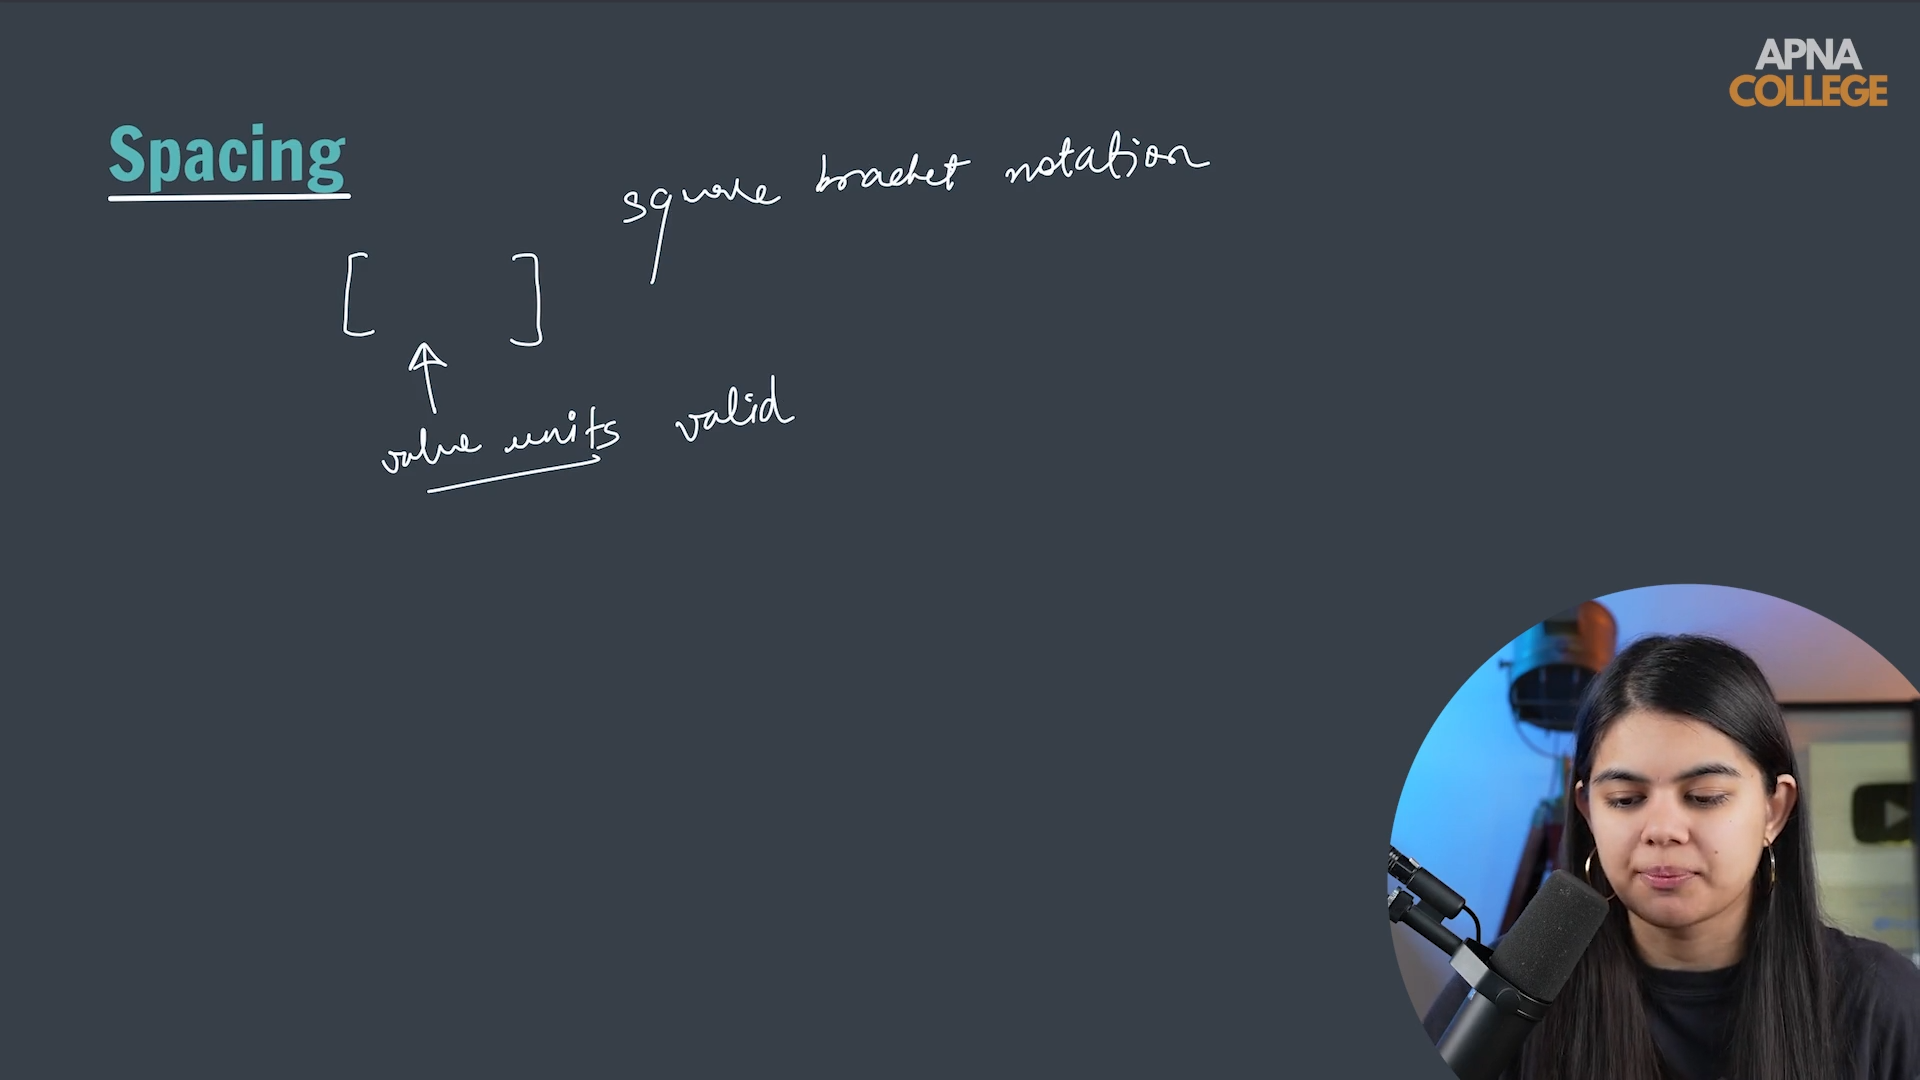 APNA
COLLEGE
Spacing
square bracket notation
[ ]
value units valid